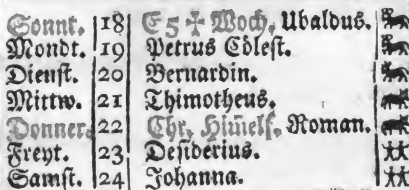 Sonnt. 18 E 5 ☩ Woch, Ubaldus.
Mondt. 19 Petrus Cölest.
Dienst. 20 Bernardin.
Mittw. 21 Thimotheus.
Donner. 22 Chr. Him̄elf. Roman.
Freyt. 23 Desiderius.
Samst. 24 Johanna.